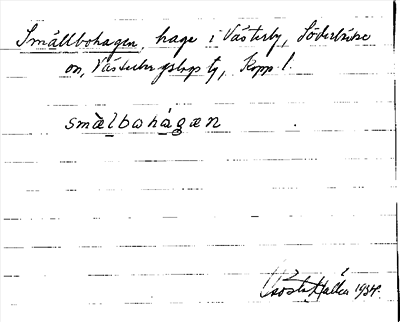 Smällbohagen, hage i Västerby, Söderbärke
sn, Västerbergslags tg, Kopp. l.
smälbohágæn
Gösta Hallén 1934.